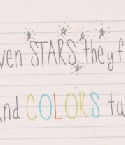 ven STARS they f
and COLORS tu